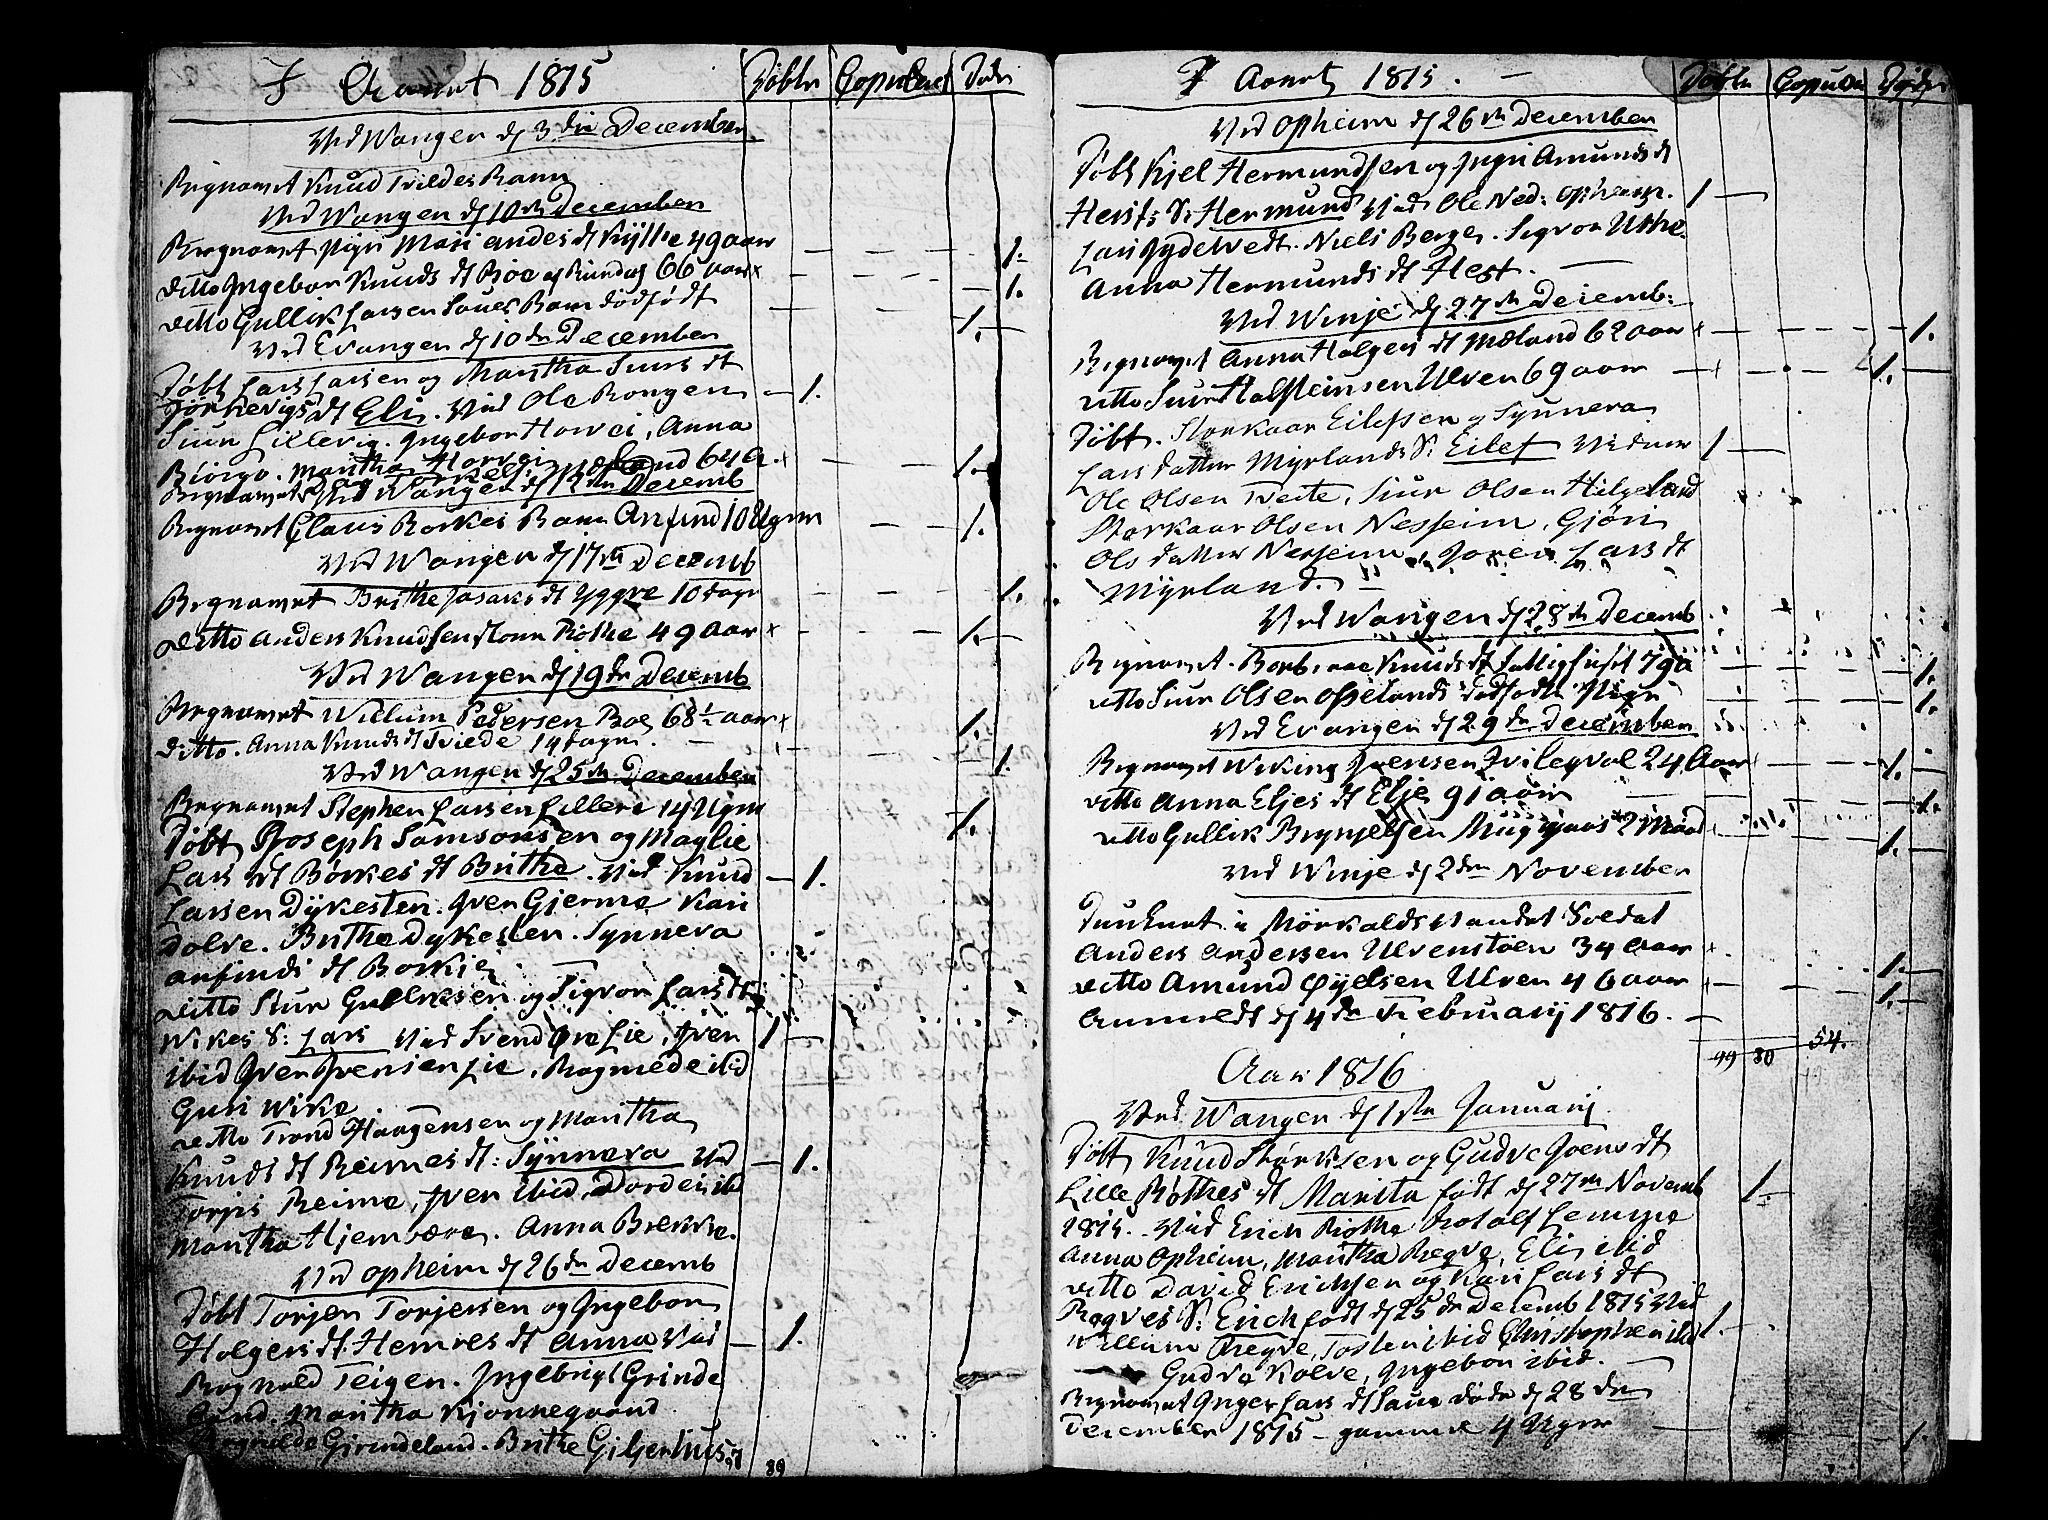 I Aaret 1815
Døbte Copuleret Døde
Ved Wangen d 3die December
Begravet Knud Tvildes Barn
Ved Wangen d 10de December
Begravet Mari Andes dt Kyllie 49 aar 1.
ditto Ingebor Knuds dt Böe af Rundag 66 aar 1.
ditto Gullik Larsen Saues Barn dødfødt 1.
Ved Evanger d 10de December
Døbt Lars Larsen og Martha Siurs dt
dt Eli. Ved Ole Rongen 1.
Siur Lillerig. Ingebor Horvei, Anna
Biörgo. Martha Horvei
Begravet 64 a. 1.
Ved Wangen d 12de Decemb
Begravet Claus Borkes Barn Anfind 10 Uger 1.
Ved Wangen d 17de Decemb
Begravet Brithe Isaks dt Yggre 10 dage 1.
ditto Anders Knudsen Röthe 49 aar 1.
Ved Wangen d 19de Decemb
Begravet Willum Pedersen Böe 68 1/2 aar 1.
ditto. Anna Knuds dt Tvede 14 dage. 1.
Ved Wangen d 25de December
Begravet Stephen Larsen Lillere 14 Uger 1.
Døbt Joseph Samsonsen og Maglie
Lars dt Børkes dt Brithe. Ved Knud 1.
Larsen Dÿkesten. Iver Gjerme Kari
Dolve. Brithe Dykesten. Synneva
Anfinds dt Borkie
ditto Siur Gulleksen og Sigvor Lars dt
Wikes S: Lars Ved Svend Øvre Lie, Iver 1
ibid Iver Iversen Lie, Rognede ibid
Guri Wike
ditto Trond Haagensen og Martha
Knuds dt Reimes dt: Sÿnneva Ved 1.
Torjis Reime, Iver ibid, Dordei ibid
Martha Hjemtvære. Anna Brekke.
Ved Opheim d 26de Decemb
Døbt Torjer Torjersen og Ingebor
Holgers dt Hemres dt Anna Ved 1.
Rognald Teigen. Ingebrigt Grinde
land. Martha Kjonnegaard
Rognilde Grindeland. Brithe Gilgerhus
97 89
I Aaret 1815.
Døbte Copule Døde
Ved Opheim d 26de December
Døbt Kjel Hermundsen og Ingri Amunds dt
Herst: S: Hermund Ved Ole Ned: Opheim. 1
Lars Gjdetvedt. Niels Berge. Sigvor Uthe.
Anna Hermunds dt Hest.
Ved Winje d 27de Decemb:
Begravet Anna Holgers dt Mæland 62 aar 1.
ditto Siur Halsteinsen Ulven 69 aar 1.
Døbt. Storkaar Eilefsen og Synneva
Lars datter Mÿrlands S: Eilef Viduer 1
Ole Olsen Tveite, Siur Olsen Hilgeland
Storkaar Olsen Nesheim, Gjøri
Ols datter Nesheim, Joren Lars dt
Mÿrland.
Ved Wangen d 28de Decemb
Begravet. Borb Knuds dt 79 a 1.
ditto Siur Olsen Opelands dødfødte Pige 1.
Ved Evanger d 29de December
Begravet Wiking Joensen 24 Aar 1.
ditto Anna Eljes dt Elje 91 aar 1.
ditto Gullik Brynjelsen 2 Maan 1.
Ved Winje d 2den November
Druknet i Mörkaldsvandet Soldat
Anders Andersen Ulvenstöen 34 Aar 1.
ditto Amund Öÿelsen Ulven 46 aar 1.
Anmeldt d 4de Februarij 1816.
99 80 54.
Aar 1816
Ved Wangen d 1ste Januarij
Døbt Knud Størksen og Gudve Joens dt
Lille Røthes dt Marita født d 27de Novemb 1.
1815. Ved Erich Röthe Rotolf Lemme
Anna Opheim, Martha Regve, Eli ibid
ditto David Erichsen og Kari Lars dt
Rogves S. Erich født d 25de Decemb 1815 Ved
Willum Regve, Tosten ibid Christopher ibid 1.
Gudve Kolve, Ingebor ibid.
Begravet Inger Lars dt Saue døde d 28de
December 1815 - gammel 4 Uger 1.